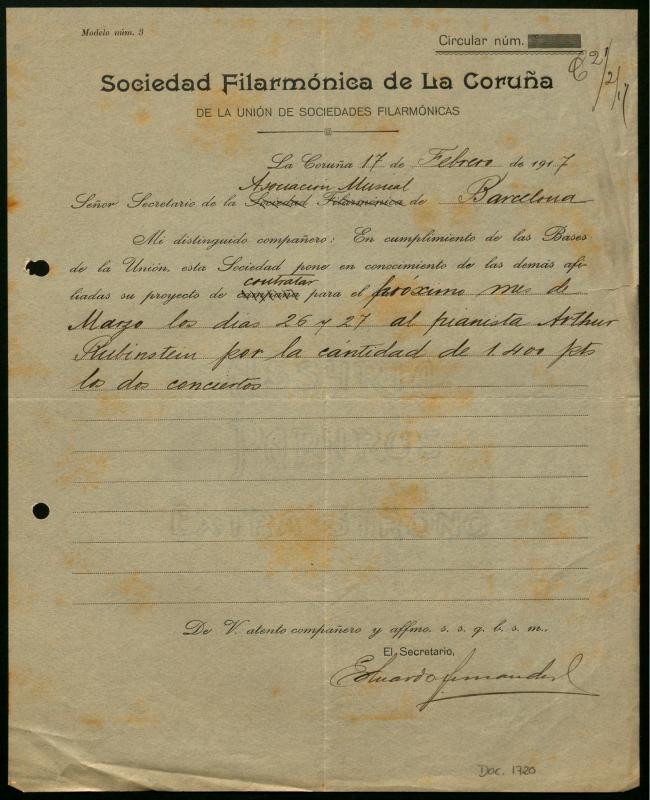 Modelo núm. 3
Circular núm.
C 21/2/17
Sociedad Filarmónica de La Coruña
DE LA UNIÓN DE SOCIEDADES FILARMÓNICAS
La Coruña 17 de Febrero de 1917
Asociación Musical
Señor Secretario de la Sociedad Filarmónica de Barcelona
Mi distinguido compañero: En cumplimiento de las Bases
de la Unión, esta Sociedad pone en conocimiento de las demás afi-
contratar
liadas su proyecto de campaña para el próximo mes de
Marzo los dias 26 y 27 al pianista Arthur
Rubinstein por la cántidad de 1.400 pts
los dos conciertos
De V. atento compañero y affmo. s. s. q. b. s. m.,
El Secretario,
Eduardo Fernandez
Doc. 1720